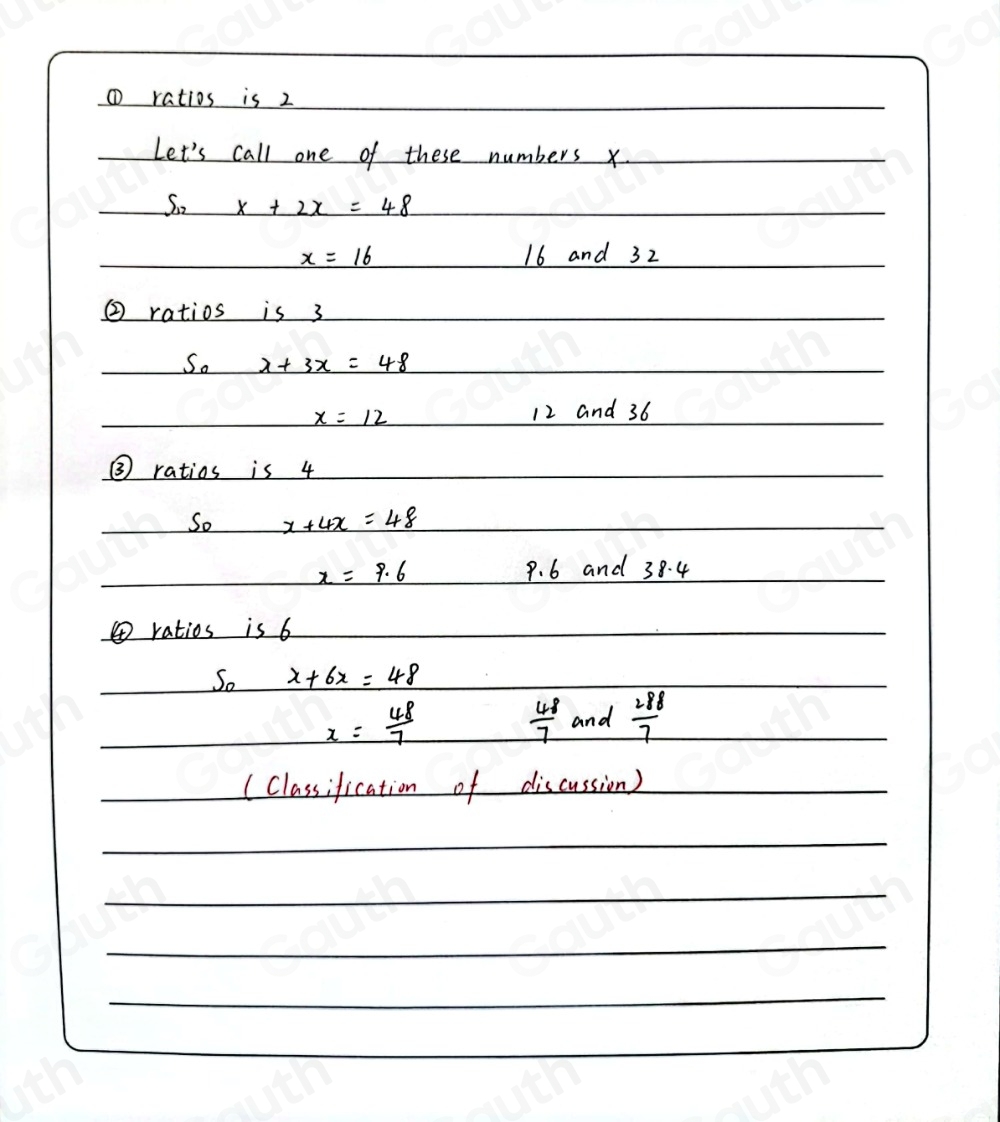 ① ratios is 2
Let's call one of these numbers x.
So x + 2x = 48
x = 16 16 and 32
② ratios is 3
So x + 3x = 48
x = 12 12 and 36
③ ratios is 4
So x + 4x = 48
x = 9.6 9.6 and 38.4
④ ratios is 6
So x + 6x = 48
x = 48/7 48/7 and 288/7
(Classification of discussion)